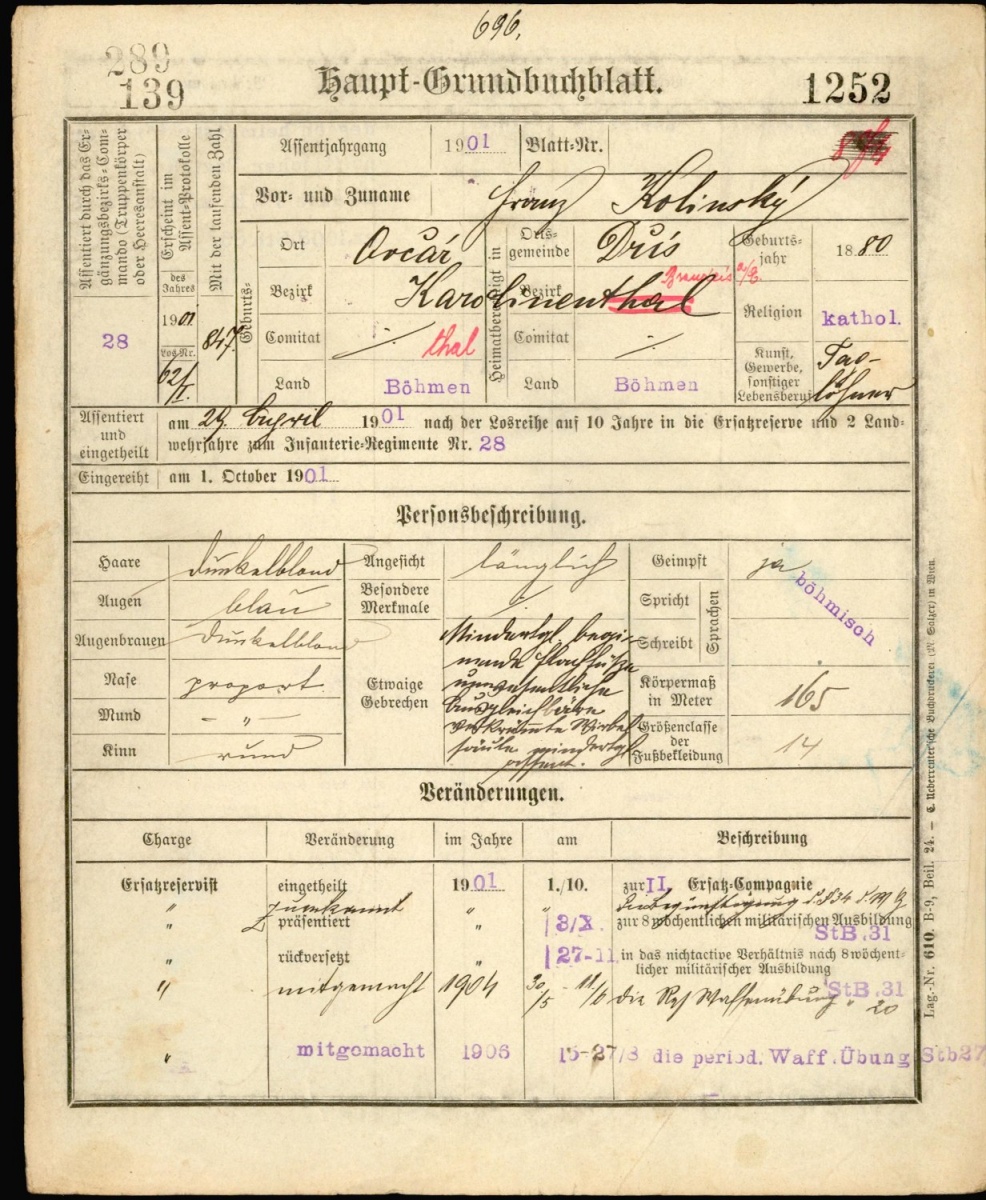 696.
289
139
Haupt-Grundbuchblatt.
1252
Assentiert durch das Ergänzungsbezirks-Commando (Truppenkörper oder Heeresanstalt)
28
Erscheint im Assent-Protokolle
des Jahres
1901
Los Nr.
62/I.
Mit der laufenden Zahl
847.
Assentjahrgang 1901 Blatt-Nr.
Vor- und Zuname Franz Kolinský
Geburts-
Ort Ovčár
Bezirk Karolinenthal
Comitat ./. thal
Land Böhmen
Heimatberechtigt in
Ortsgemeinde Dřis
Bezirk Brandeis a/E.
Comitat ./.
Land Böhmen
Geburtsjahr 1880
Religion kathol.
Kunst, Gewerbe, sonstiger Lebensberuf Taglöhner
Assentiert und eingetheilt
am 29. April 1901 nach der Losreihe auf 10 Jahre in die Ersatzreserve und 2 Land-
wehrjahre zum Infanterie-Regimente Nr. 28
Eingereiht am 1. October 1901
Personsbeschreibung.
Haare dunkelblond
Augen blau
Augenbrauen dunkelblond
Nase proport.
Mund – " –
Kinn rund
Angesicht länglich
Besondere Merkmale ./.
Etwaige Gebrechen
Mindertgl. begi-
nende Flachfüße
unwesentliche
ausgleichbare
verkrümte Wirbel
säule mindertgl
Geimpft ja
Spricht
Schreibt
Sprachen
böhmisch
Körpermaß in Meter 165
Größenclasse der Fußbekleidung 14
Veränderungen.
Charge Veränderung im Jahre am Beschreibung
Ersatzreservist eingetheilt 1901 1./10. zur II. Ersatz-Compagnie
" zuerkannt " " Begünstigung d. § 34 d. W G
" präsentiert " 3/X. zur 8 wöchentlichen militärischen Ausbildung
StB.31
" rückversetzt " 27-11 in das nichtactive Verhältnis nach 8 wöchent-
licher militärischer Ausbildung
StB.31
" mitgemacht 1904 30/5 - 11/6 die Res Waffenübung " 20
" mitgomacht 1906 15-27/8 die period. Waff.Übung Stb27
Lag.-Nr. 610. B-9, Beil. 24. — C. Ueberreuter'sche Buchdruckerei (M. Salzer) in Wien.